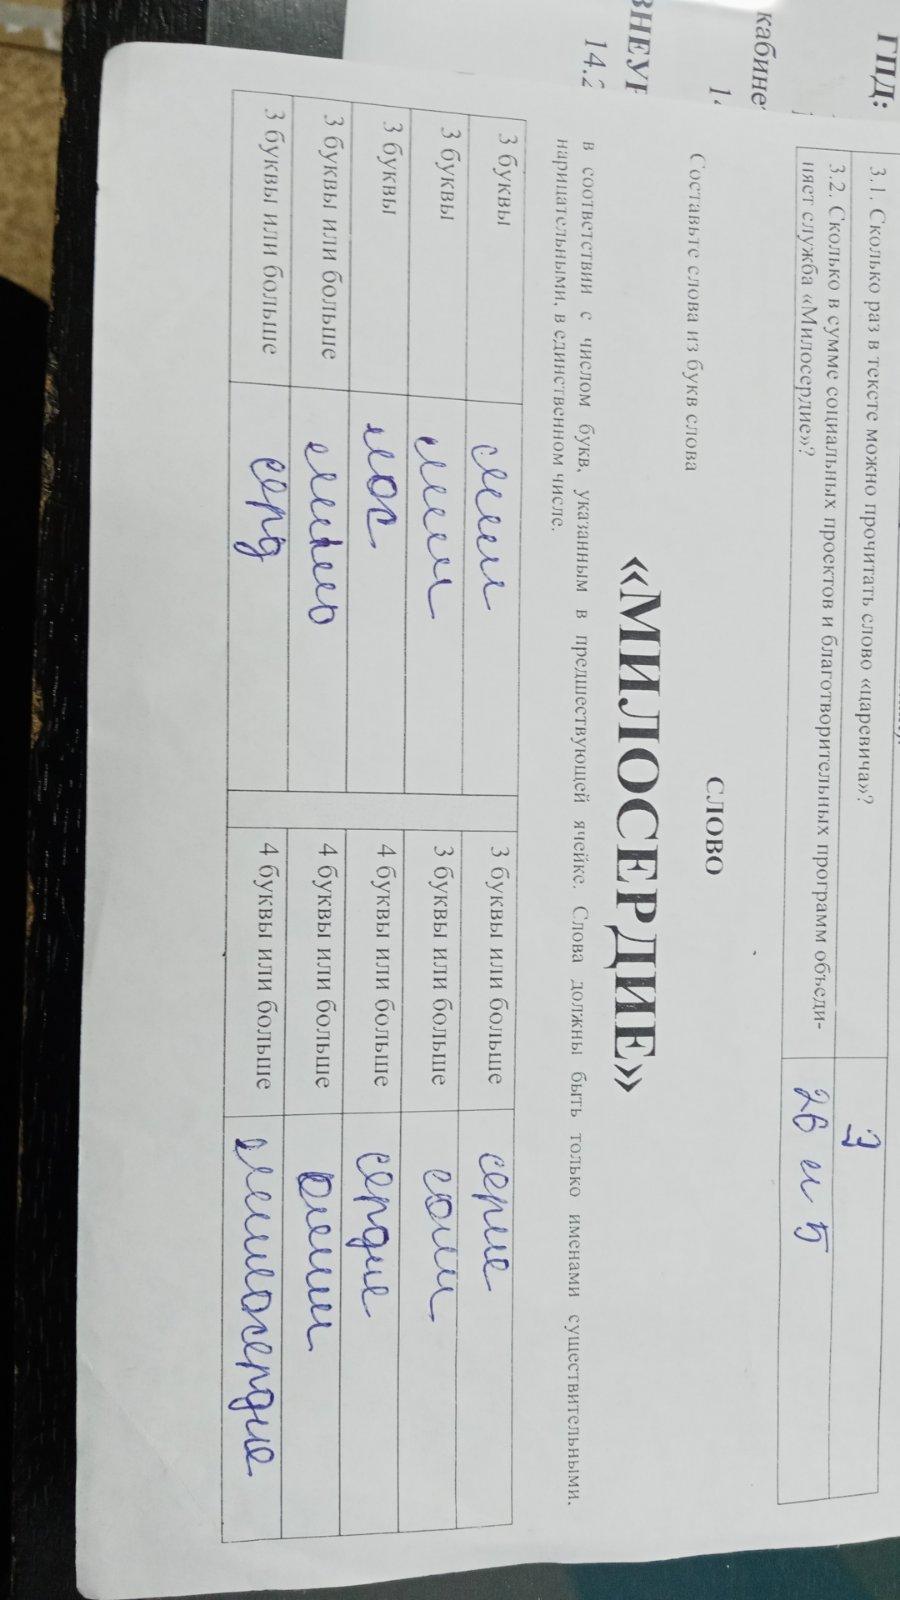 ГПД:
кабине
ВНЕУР
14.2
3.1. Сколько раз в тексте можно прочитать слово «царевича»?
3
3.2. Сколько в сумме социальных проектов и благотворительных программ объеди-
няет служба «Милосердие»?
26 и 5
СЛОВО
Составьте слова из букв слова
«МИЛОСЕРДИЕ»
в соответствии с числом букв, указанным в предшествующей ячейке. Слова должны быть только именами существительными,
нарицательными, в единственном числе.
3 буквы
3 буквы или больше
3 буквы
3 буквы или больше
3 буквы
мос
4 буквы или больше
сердие
3 буквы или больше
4 буквы или больше
3 буквы или больше
серд
4 буквы или больше
милосердие